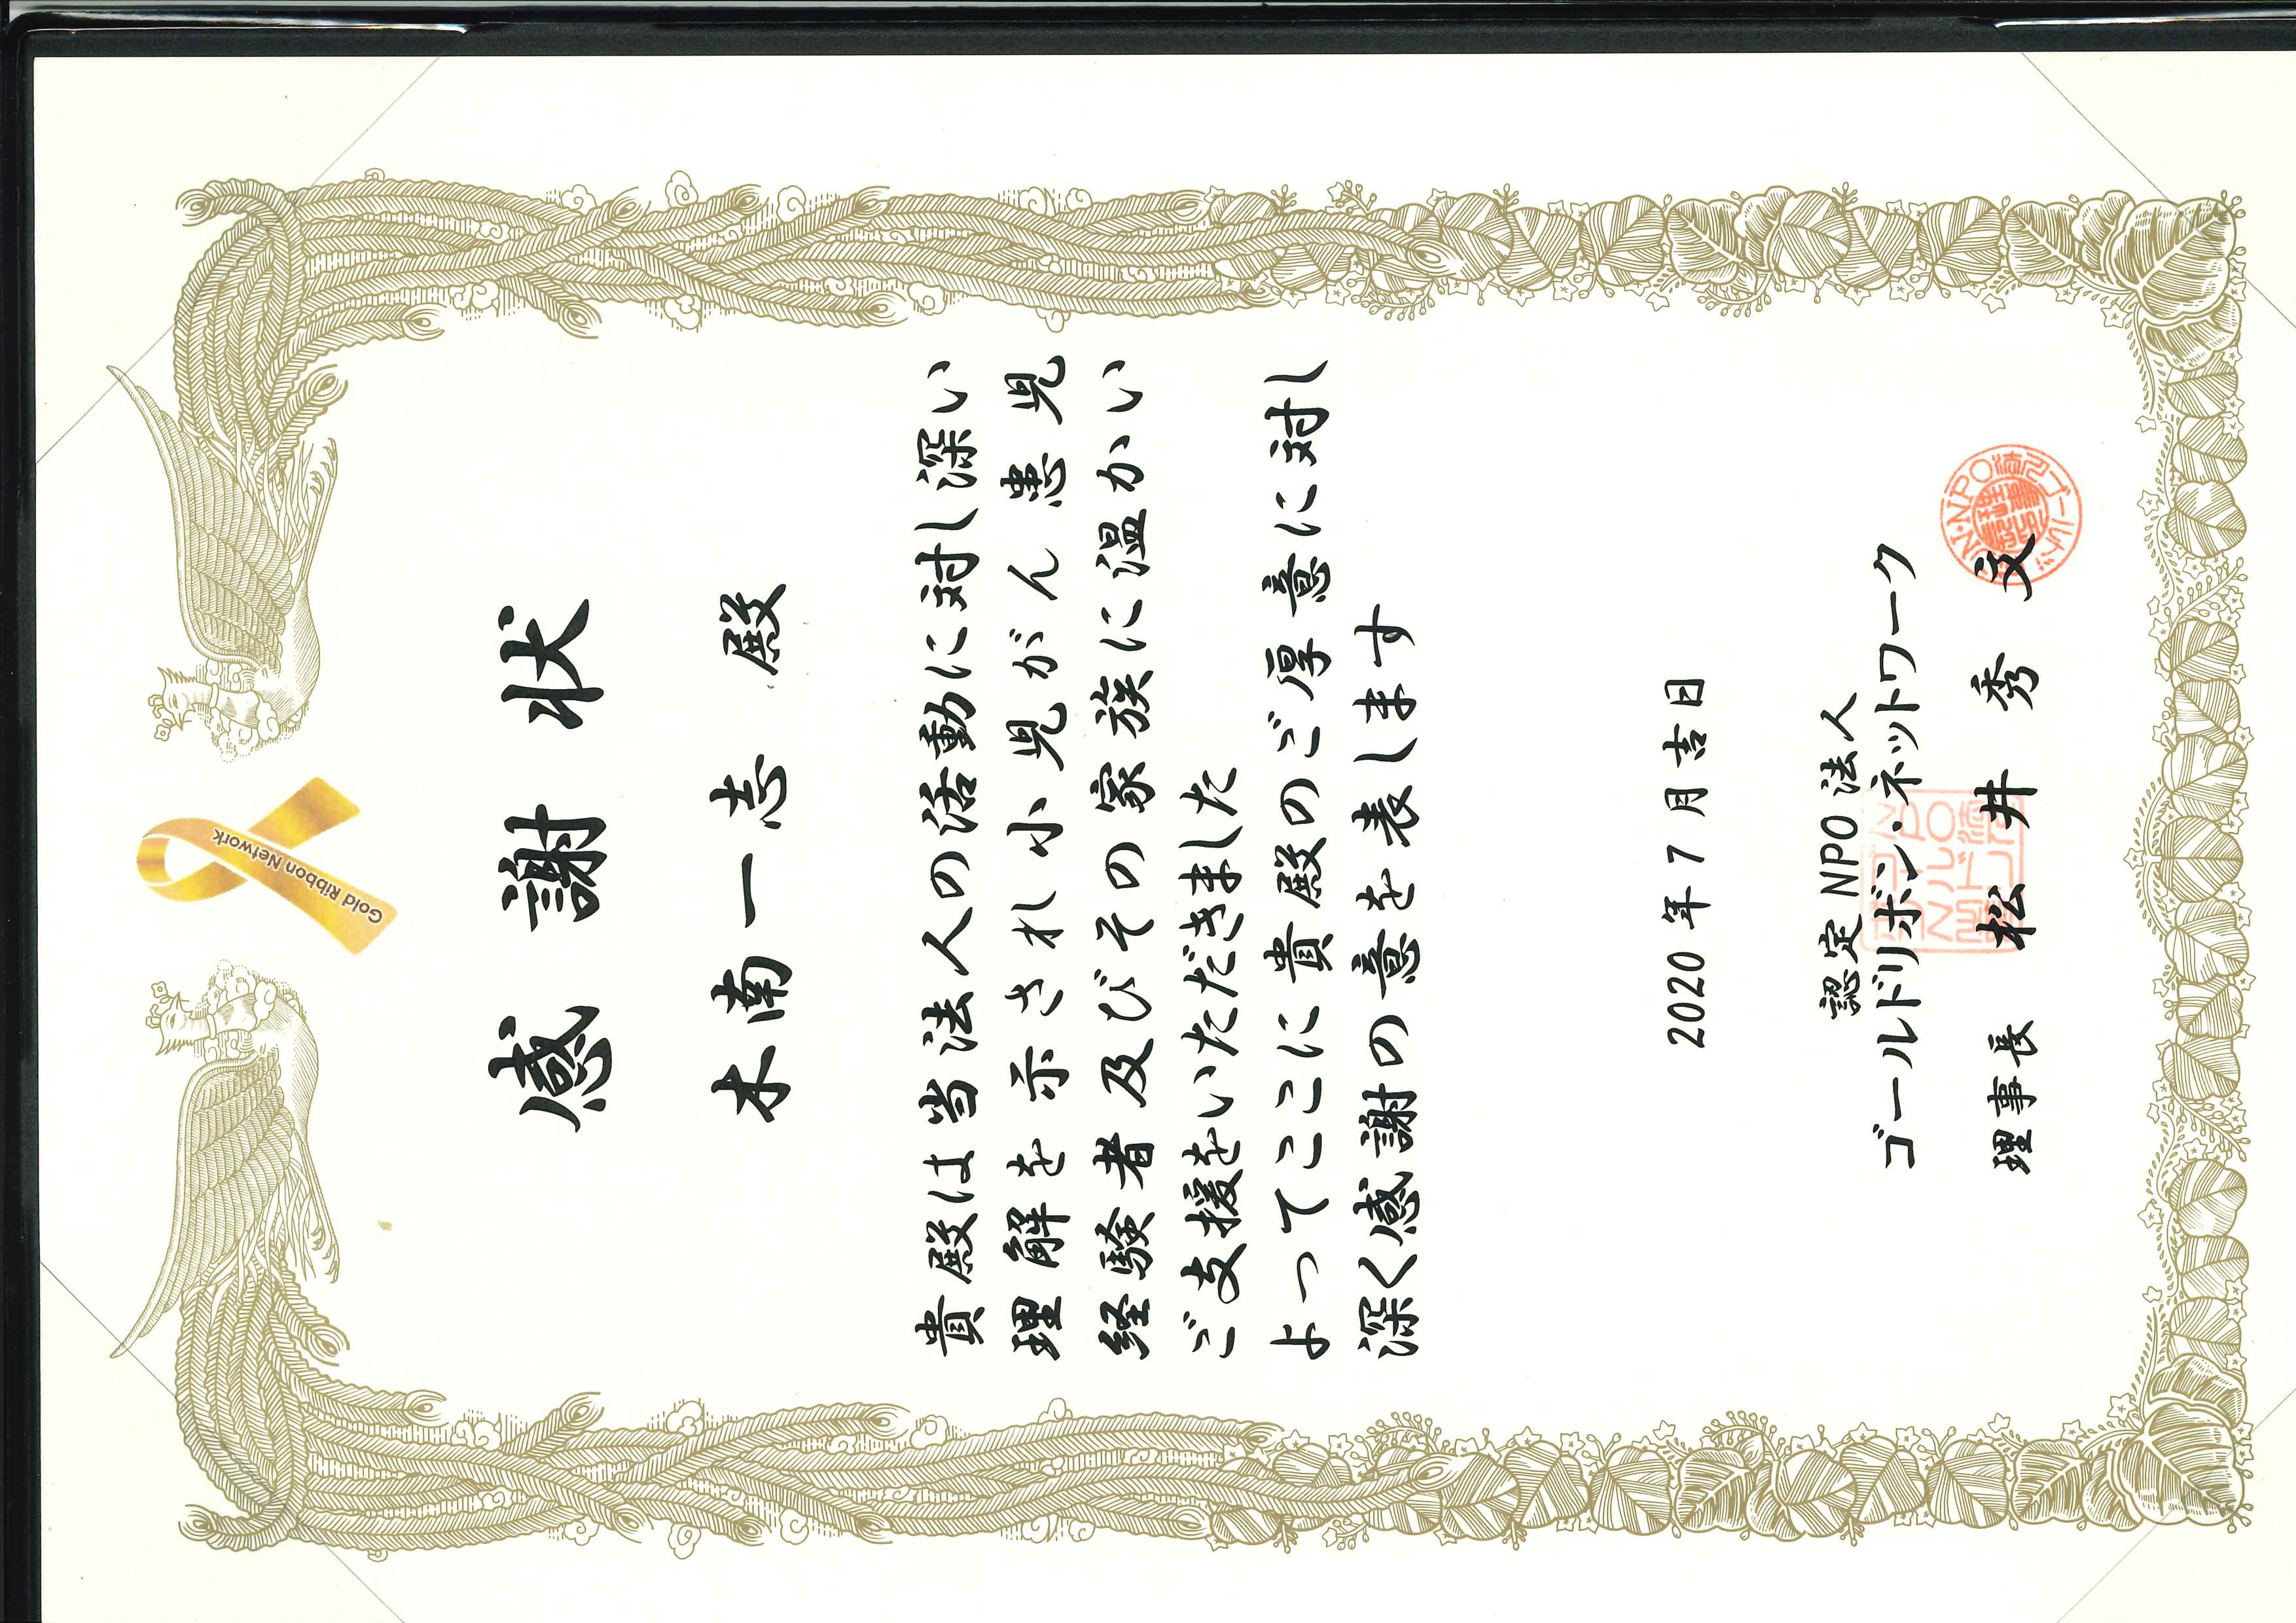 Gold Ribbon Network
感謝状
木南一志 殿
貴殿は当法人の活動に対し深い
理解を示され小児がん患児
経験者及びその家族に温かい
ご支援をいただきました
よってここに貴殿のご厚意に対し
深く感謝の意を表します
2020年7月吉日
認定NPO法人
ゴールドリボン・ネットワーク
理事長 松井秀文